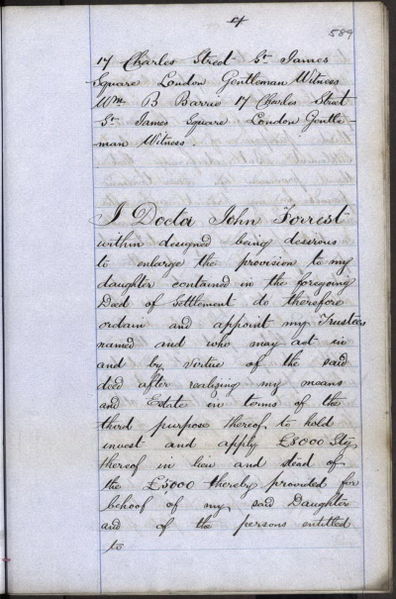 4
589
17 Charles Street St. James
Square London Gentleman Witness
Wm. B Barrie 17 Charles Street
St. James Square London Gentle-
man Witness.
I Doctor John Forrest
within designed being desirous
to enlarge the provision to my
daughter contained in the foregoing
Deed of Settlement do therefore
ordain and appoint my Trustees
named and who may act in
and by virtue of the said
deed after realising my means
and Estate in terms of the
third purpose thereof to hold
invest and apply £8000 Stg
thereof in lieu and stead of
the £5,000 thereby provided for
behoof of my said Daughter
and of the persons entitled
to